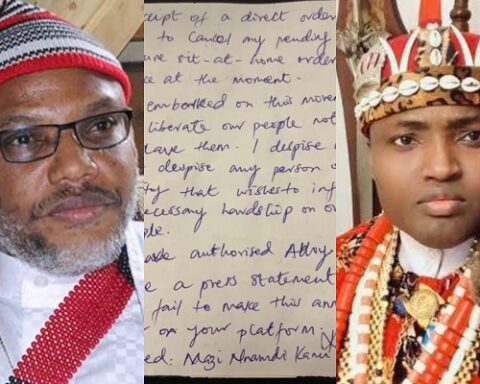 ceipt of a direct order
to Cancel my pending
ure sit-at-home order
ce at the moment.
embarked on this move
liberate our people not
lave them. I despise
despise any person o
ty that wishes to inf
ecessary hardship on o
ple.
ade authorised Atty
e a press statement
fail to make this ann
on your platform.
ed: Mazi Nnamdi Kanu